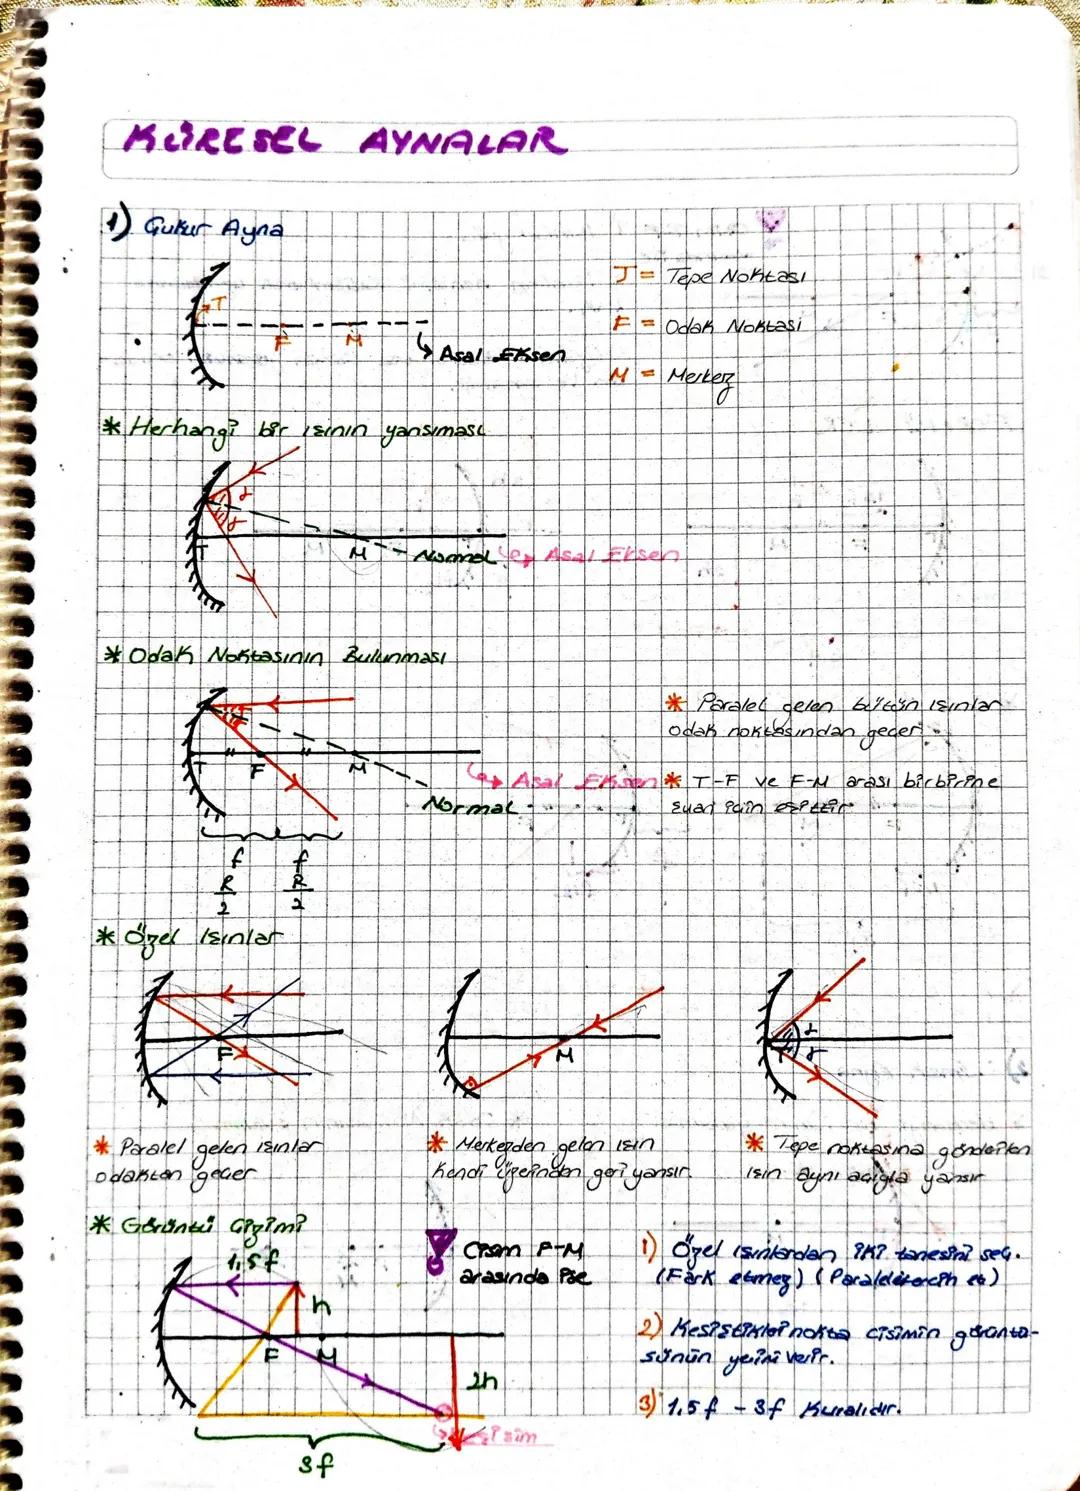 KÜRESEL AYNALAR
1) Çukur Ayna
T
F
M
Asal Eksen
T = Tepe Noktası
F = Odak Noktası
M = Merkez
* Herhangi bir ışının yansıması
α
α
T
M
Normal
Asal Eksen
* Odak Noktasının Bulunması
T
F
M
Asal Eksen
Normal
f
f
R/2
R/2
* Paralel gelen bütün ışınlar
odak noktasından geçer.
* T-F ve F-M arası birbirine
eşittir
* Özel Işınlar
F
M
T
α
α
* Paralel gelen ışınlar
odaktan geçer
* Merkezden gelen ışın
Kendi üzerinden geri yansır.
* Tepe noktasına gönderilen
ışın aynı açıyla yansır
* Görüntü Çizimi
1,5f
h
F
M
2h
3f
Cisim F-M
arasında ise
1) Özel ışınlardan iki tanesini seç.
(Fark etmez) (Paraleli tercih et)
2) Kesiştikleri nokta cisimin görüntü-
sünün yerini verir.
3) 1,5f - 3f Kuralıdır.